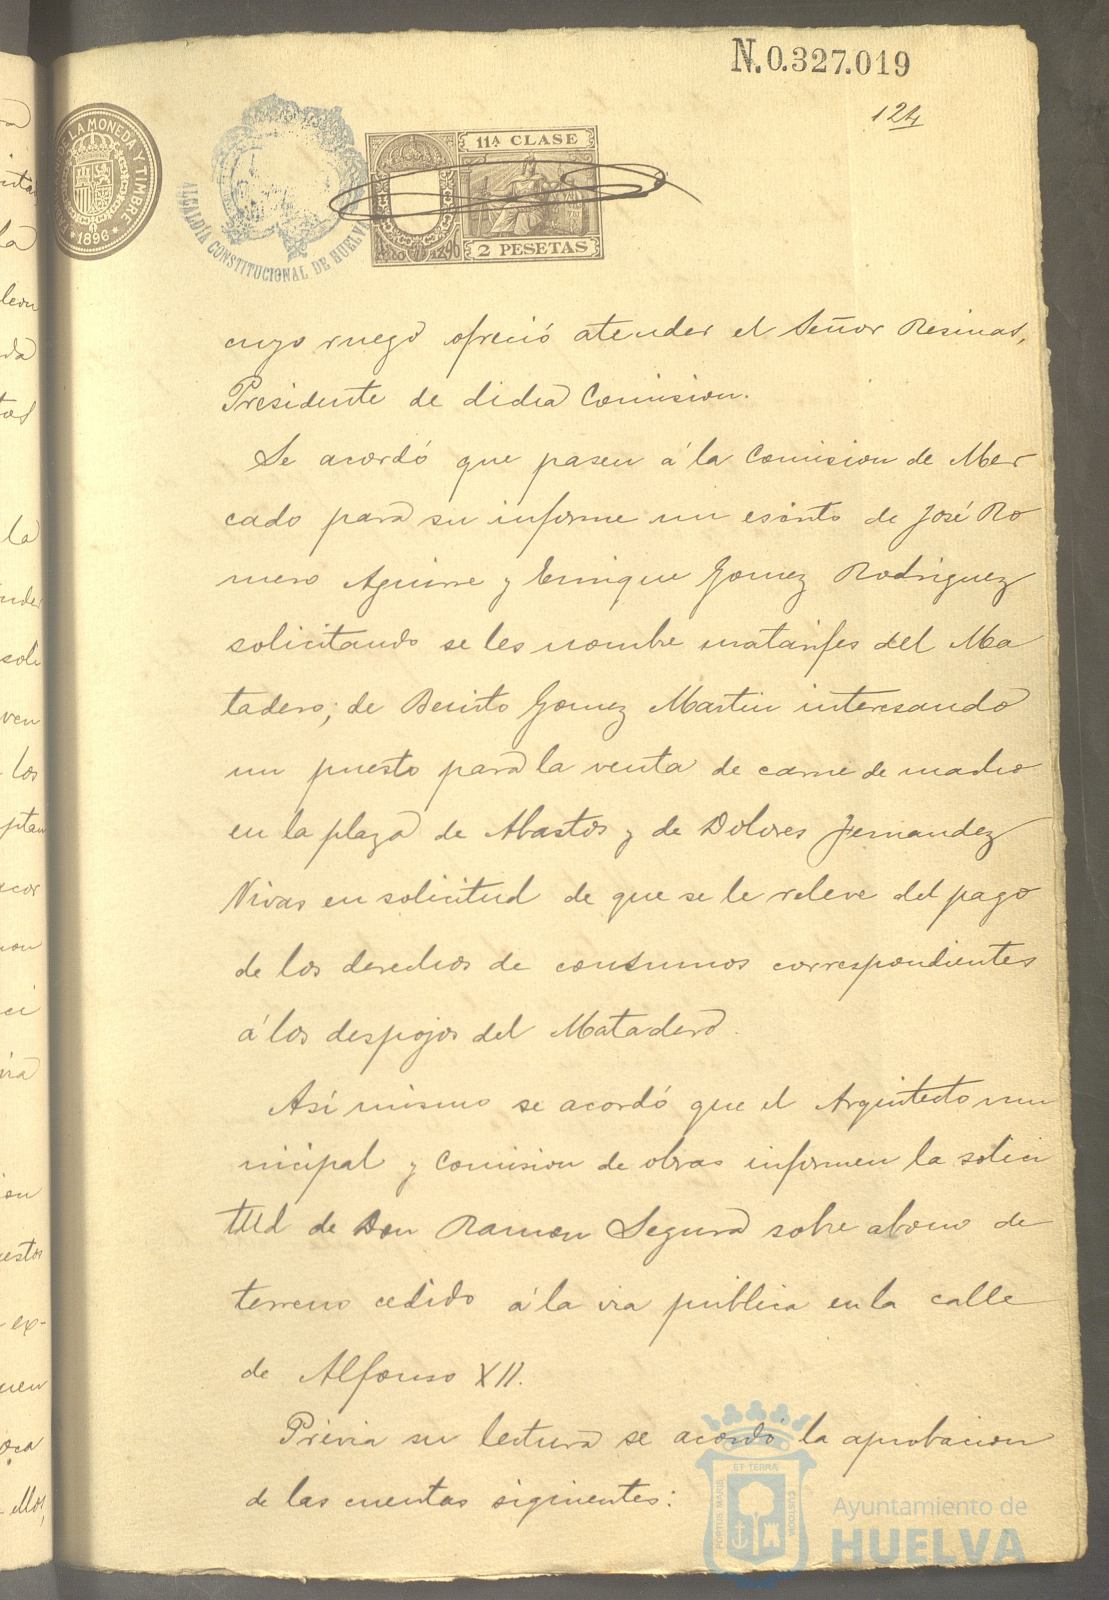 N.0.327.019
124
FABRICA NACIONAL DE LA MONEDA Y TIMBRE
* 1896 *
ALCALDÍA CONSTITUCIONAL DE HUELVA
11ª CLASE
2 PESETAS
cuyo ruego ofreció atender el Señor Resinas,
Presidente de dicha Comision.
Se acordó que pasen á la Comision de Mer
cado para su informe un escrito de José Ro
mero Aguirre y Enrique Gomez Rodriguez
solicitando se les nombre matarifes del Ma
tadero; de Benito Gomez Martin interesando
un puesto para la venta de carne de macho
en la plaza de Abastos y de Dolores Fernandez
Vivas en solicitud de que se le releve del pago
de los derechos de consumos correspondientes
á los despojos del Matadero.
Así mismo se acordó que el Arquitecto mu
nicipal y Comision de obras informen la solici
tud de Don Ramon Segura sobre abono de
terreno cedido á la via publica en la calle
de Alfonso XII.
Previa su lectura se acordó la aprobacion
de las cuentas siguientes:
PORTUS MARIS ET TERRA CUSTODIA
Ayuntamiento de
HUELVA